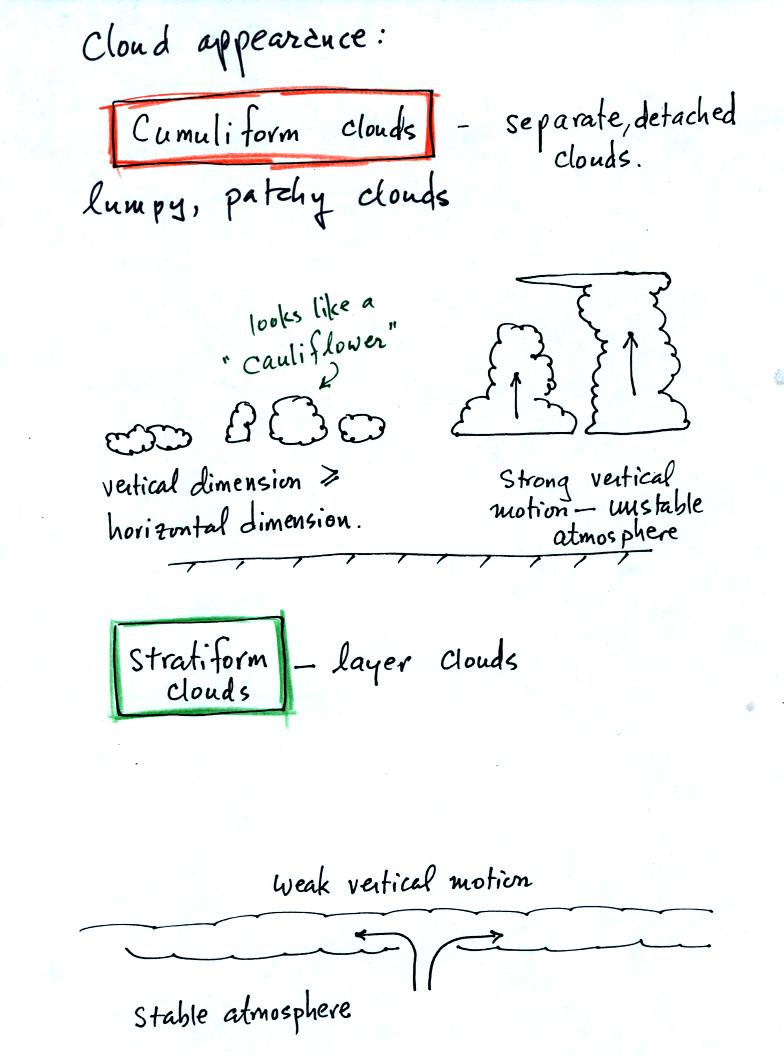 Cloud appearance:
Cumuliform clouds - separate, detached
clouds.
lumpy, patchy clouds
looks like a
"cauliflower"
vertical dimension ⩾
horizontal dimension.
Strong vertical
motion — unstable
atmosphere
Stratiform
clouds
— layer clouds
weak vertical motion
Stable atmosphere